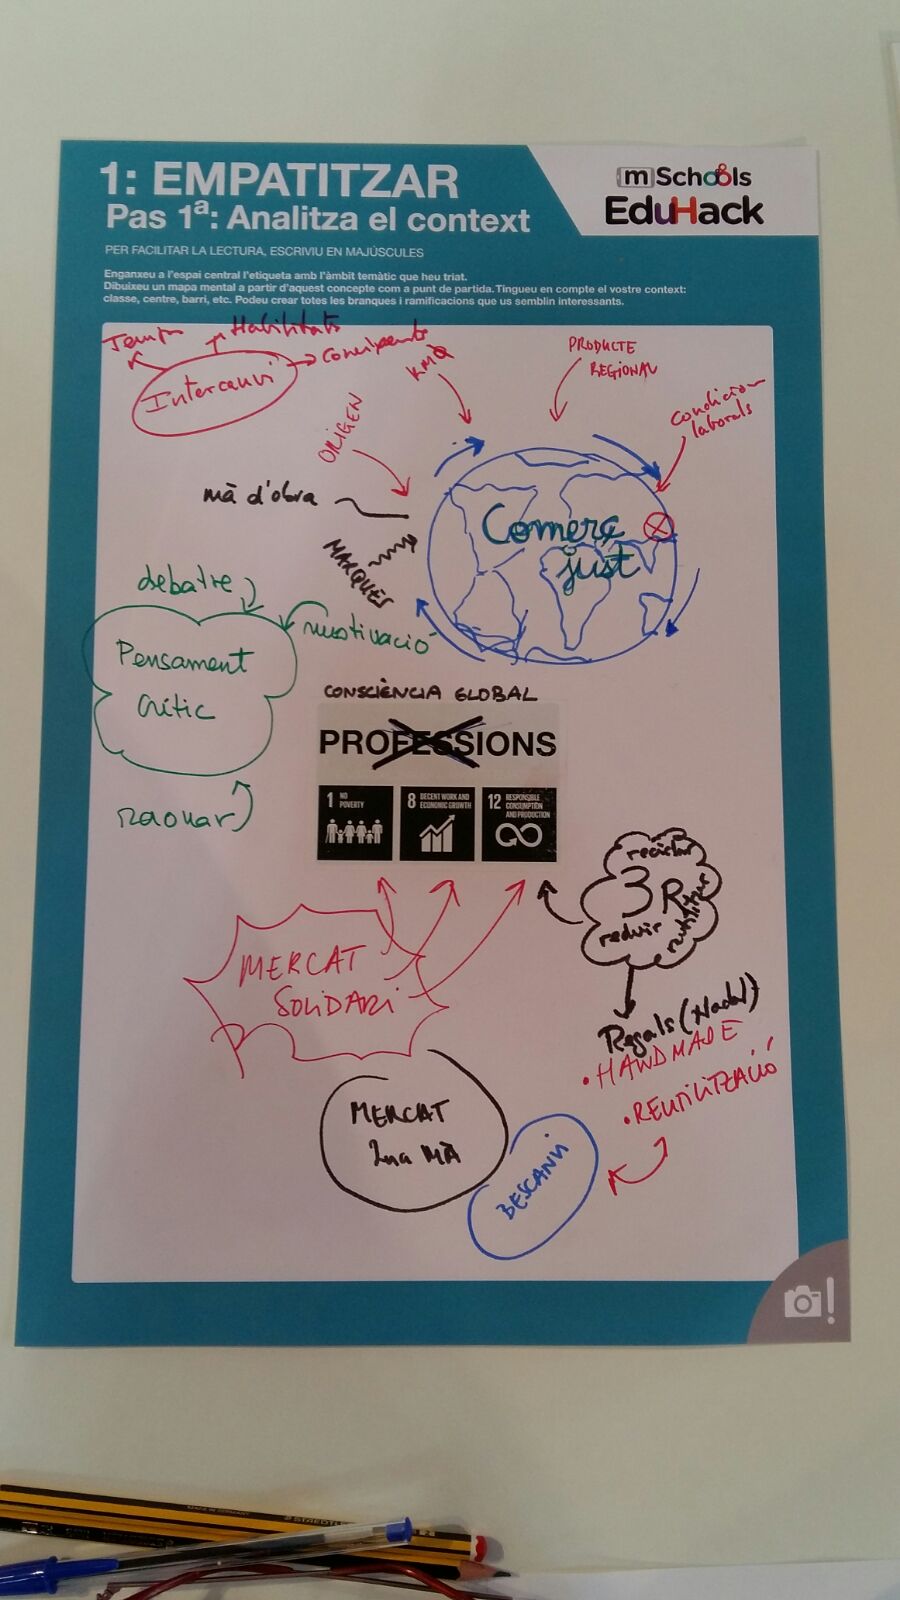 1: EMPATITZAR
Pas 1ª: Analitza el context
mSchools
EduHack
PER FACILITAR LA LECTURA, ESCRIVIU EN MAJÚSCULES
Enganxeu a l'espai central l'etiqueta amb l'àmbit temàtic que heu triat.
Dibuixeu un mapa mental a partir d'aquest concepte com a punt de partida. Tingueu en compte el vostre context:
classe, centre, barri, etc. Podeu crear totes les branques i ramificacions que us semblin interessants.
Habilitats
Intercanvi
KM0
PRODUCTE
REGIONAL
Condicions
laborals
ORIGEN
mà d'obra
MARQUES
Comerç
just
debatre
motivació
Pensament
crític
raonar
CONSCIÈNCIA GLOBAL
PROFESSIONS
1 NO
POVERTY
8 DECENT WORK AND
ECONOMIC GROWTH
12 RESPONSIBLE
CONSUMPTION
AND PRODUCTION
reciclar
3R
reduir
reutilitzar
MERCAT
SOLIDARI
Regals (Nadal)
• HANDMADE
• REUTILITZACIÓ
MERCAT
2na MÀ
BESCANVI
!